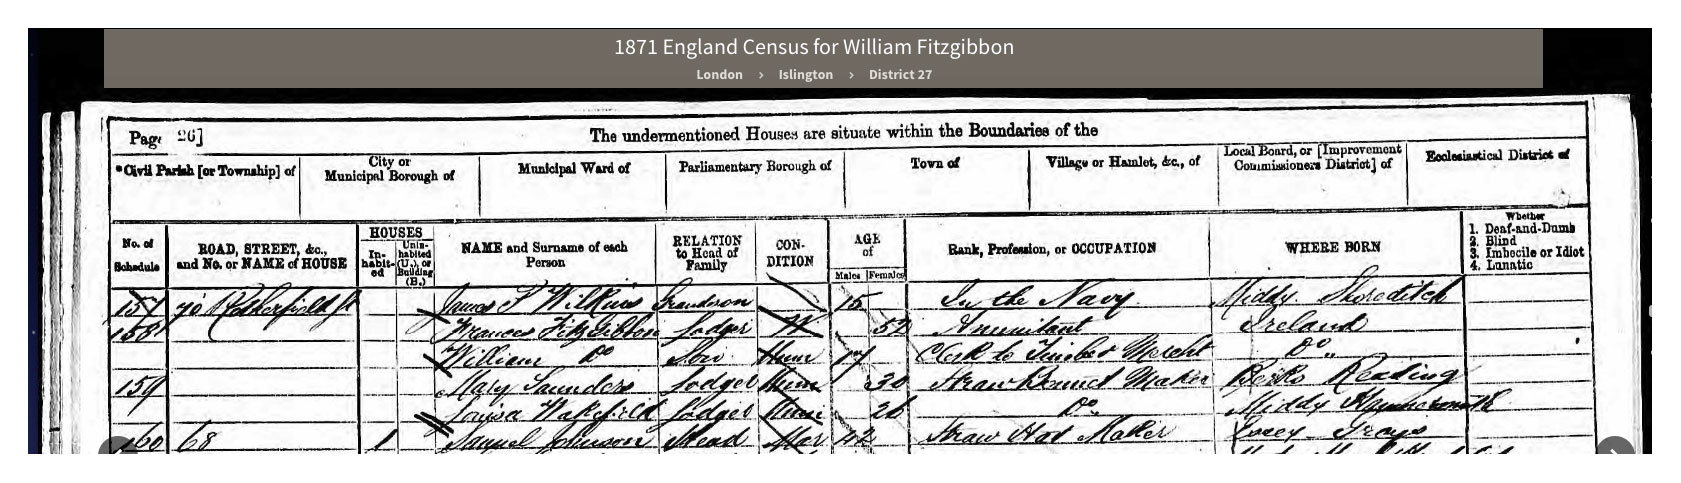 1871 England Census for William Fitzgibbon
London › Islington › District 27
Page 26]
The undermentioned Houses are situate within the Boundaries of the
*Civil Parish [or Township] of
City or Municipal Borough of
Municipal Ward of
Parliamentary Borough of
Town of
Village or Hamlet, &c., of
Local Board, or [Improvement Commissioners District] of
Ecclesiastical District of
No. of Schedule
ROAD, STREET, &c., and No. or NAME of HOUSE
HOUSES
In-habit-ed
Unin-habited (U.), or Building (B.)
NAME and Surname of each Person
RELATION to Head of Family
CON-DITION
AGE of
Males Females
Rank, Profession, or OCCUPATION
WHERE BORN
Whether
1. Deaf-and-Dumb
2. Blind
3. Imbecile or Idiot
4. Lunatic
157 70 Rotherfield St James Wilkins Grandson 15 In the Navy Middx Shoreditch
158 Frances FitzGibbon Lodger W 52 Annuitant Ireland
William Do Son Unm 17 Clerk to Timber Mercht Do
159 Mary Saunders Lodger Unm 30 Straw Bonnet Maker Berks Reading
Louisa Wakefield Lodger Unm 26 Do Middx Hammersmith
160 68 1 Samuel Johnson Head Mar 42 Straw Hat Maker Essex Grays